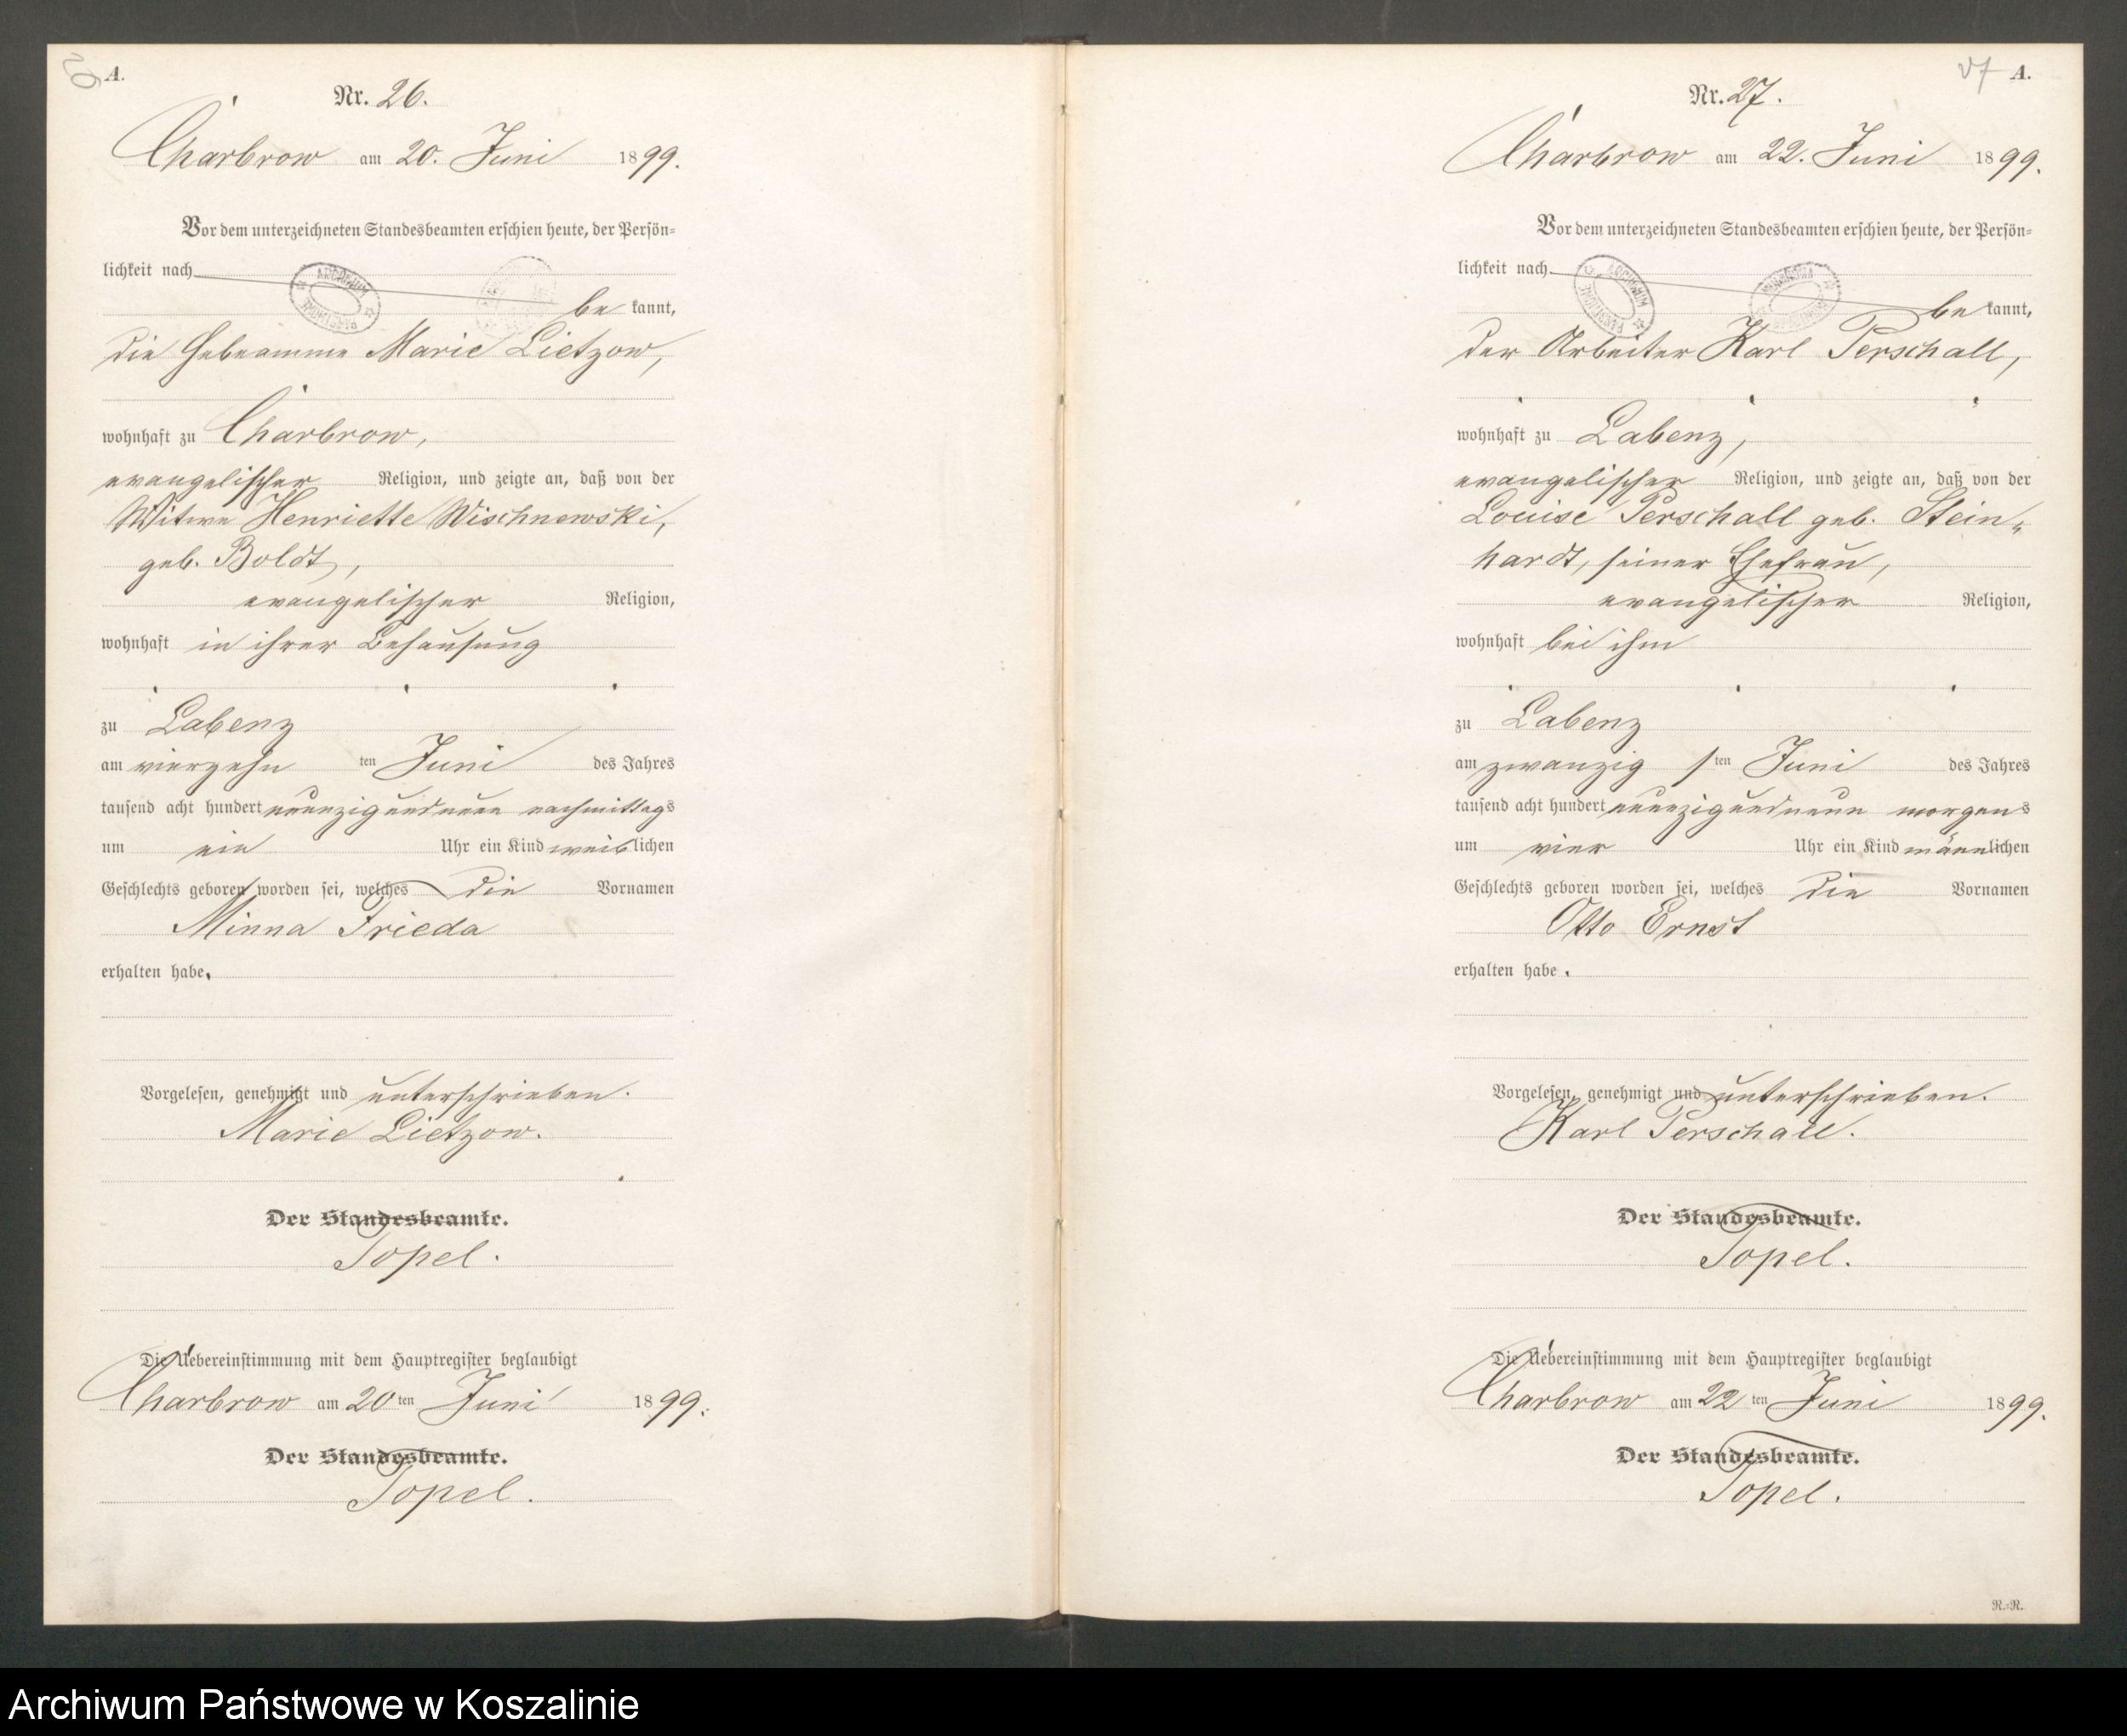 A.
Nr. 26.
Charbrow am 20. Juni 1899.
Vor dem unterzeichneten Standesbeamten erschien heute, der Persön-
lichkeit nach
be kannt,
die Hebeamme Marie Lietzow,
wohnhaft zu Charbrow,
evangelischer Religion, und zeigte an, daß von der
Witwe Henriette Wischnewski,
geb. Boldt,
evangelischer Religion,
wohnhaft in ihrer Behausung
zu Labenz
am vierzehn ten Juni des Jahres
tausend acht hundert neunzig und neun nachmittags
um ein Uhr ein Kind weiblichen
Geschlechts geboren worden sei, welches die Vornamen
Minna Frieda
erhalten habe.
Vorgelesen, genehmigt und unterschrieben.
Marie Lietzow.
Der Standesbeamte.
Topel.
Die Uebereinstimmung mit dem Hauptregister beglaubigt
Charbrow am 20ten Juni 1899.
Der Standesbeamte.
Topel.
27 A.
Nr. 27.
Charbrow am 22. Juni 1899.
Vor dem unterzeichneten Standesbeamten erschien heute, der Persön-
lichkeit nach
be kannt,
der Arbeiter Karl Perschall,
wohnhaft zu Labenz,
evangelischer Religion, und zeigte an, daß von der
Louise Perschall geb. Stein-
hardt, seiner Ehefrau,
evangelischer Religion,
wohnhaft bei ihm
zu Labenz
am zwanzig sten Juni des Jahres
tausend acht hundert neunzig und neun morgens
um vier Uhr ein Kind männlichen
Geschlechts geboren worden sei, welches die Vornamen
Otto Ernst
erhalten habe.
Vorgelesen, genehmigt und unterschrieben.
Karl Perschall.
Der Standesbeamte.
Topel.
Die Uebereinstimmung mit dem Hauptregister beglaubigt
Charbrow am 22 ten Juni 1899.
Der Standesbeamte.
Topel.
R.=R.
Archiwum Państwowe w Koszalinie